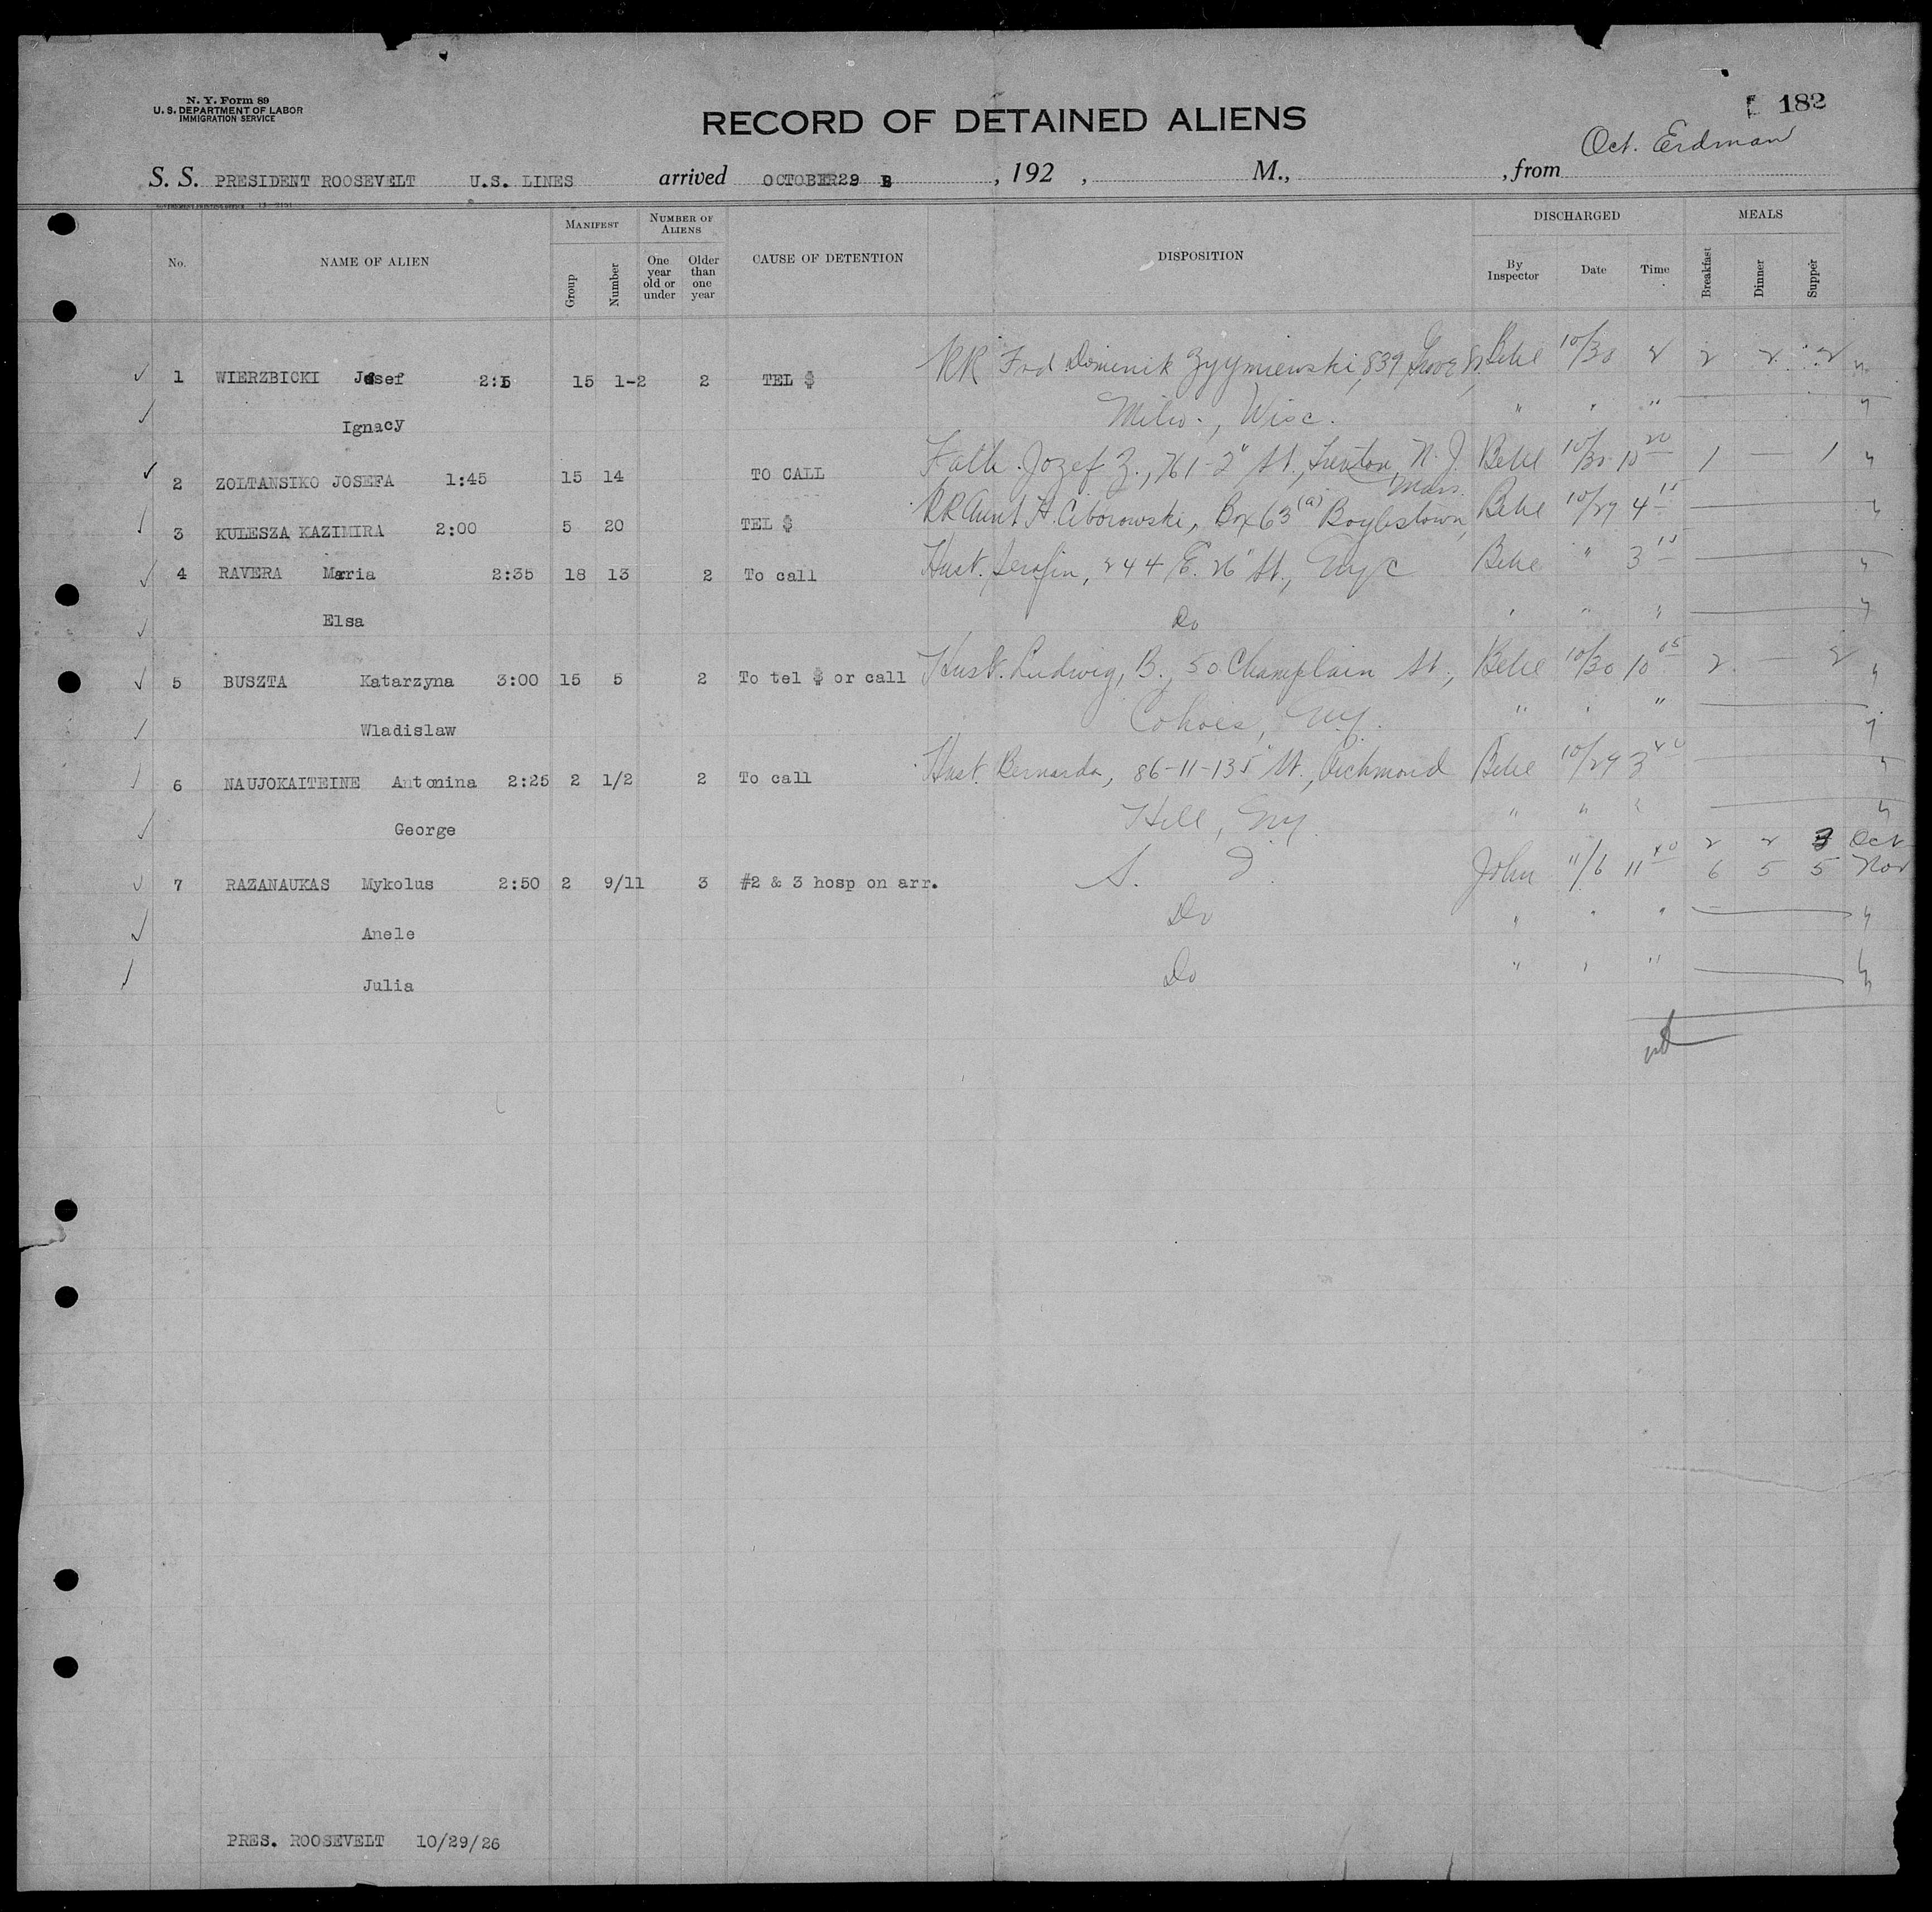 N. Y. Form 89
U. S. DEPARTMENT OF LABOR
IMMIGRATION SERVICE
RECORD OF DETAINED ALIENS
182
Oct. Erdman
S. S. PRESIDENT ROOSEVELT U.S. LINES arrived OCTOBER29 , 192 , M., , from
No. NAME OF ALIEN MANIFEST Group Number NUMBER OF ALIENS One year old or under Older than one year CAUSE OF DETENTION DISPOSITION DISCHARGED By Inspector Date Time MEALS Breakfast Dinner Supper
1 WIERZBICKI Josef 15 1-2 2 TEL $ RR Frd Dominik Zygmiewski, 839 St. Behl 10/30 2 2 2
Ignacy Milw., Wisc. " " "
2 ZOLTANSIKO JOSEFA 1:45 15 14 TO CALL Fath. Jozef Z., 761-2" St., Trenton, N. J. Behl 10/30 10 20 1 — 1
3 KULESZA KAZIMIRA 2:00 5 20 TEL $ RR Aunt H. Ciborowski, Box 63 (a) Boylestown, Mass. Behl 10/29 4 15
4 RAVERA Maria 2:35 18 13 2 To call Hust. Serafin, 244 E. 26" St., NYC Behl " 3 15
Elsa Do " " "
5 BUSZTA Katarzyna 3:00 15 5 2 To tel $ or call Husb. Ludwig, B., 50 Champlain St., Behl 10/30 10 05 2 — 2
Wladislaw Cohoes, NY. " " "
6 NAUJOKAITEINE Antonina 2:25 2 1/2 2 To call Hust. Bernarda, 86-11-135" St., Richmond Behl 10/29 3 40
George Hill, NY. " " "
2 2 3 Oct
7 RAZANAUKAS Mykolus 2:50 2 9/11 3 #2 & 3 hosp on arr. S. I. John 11/6 11 40 6 5 5 Nov
Anele Do " " "
Julia Do " " "
PRES. ROOSEVELT 10/29/26